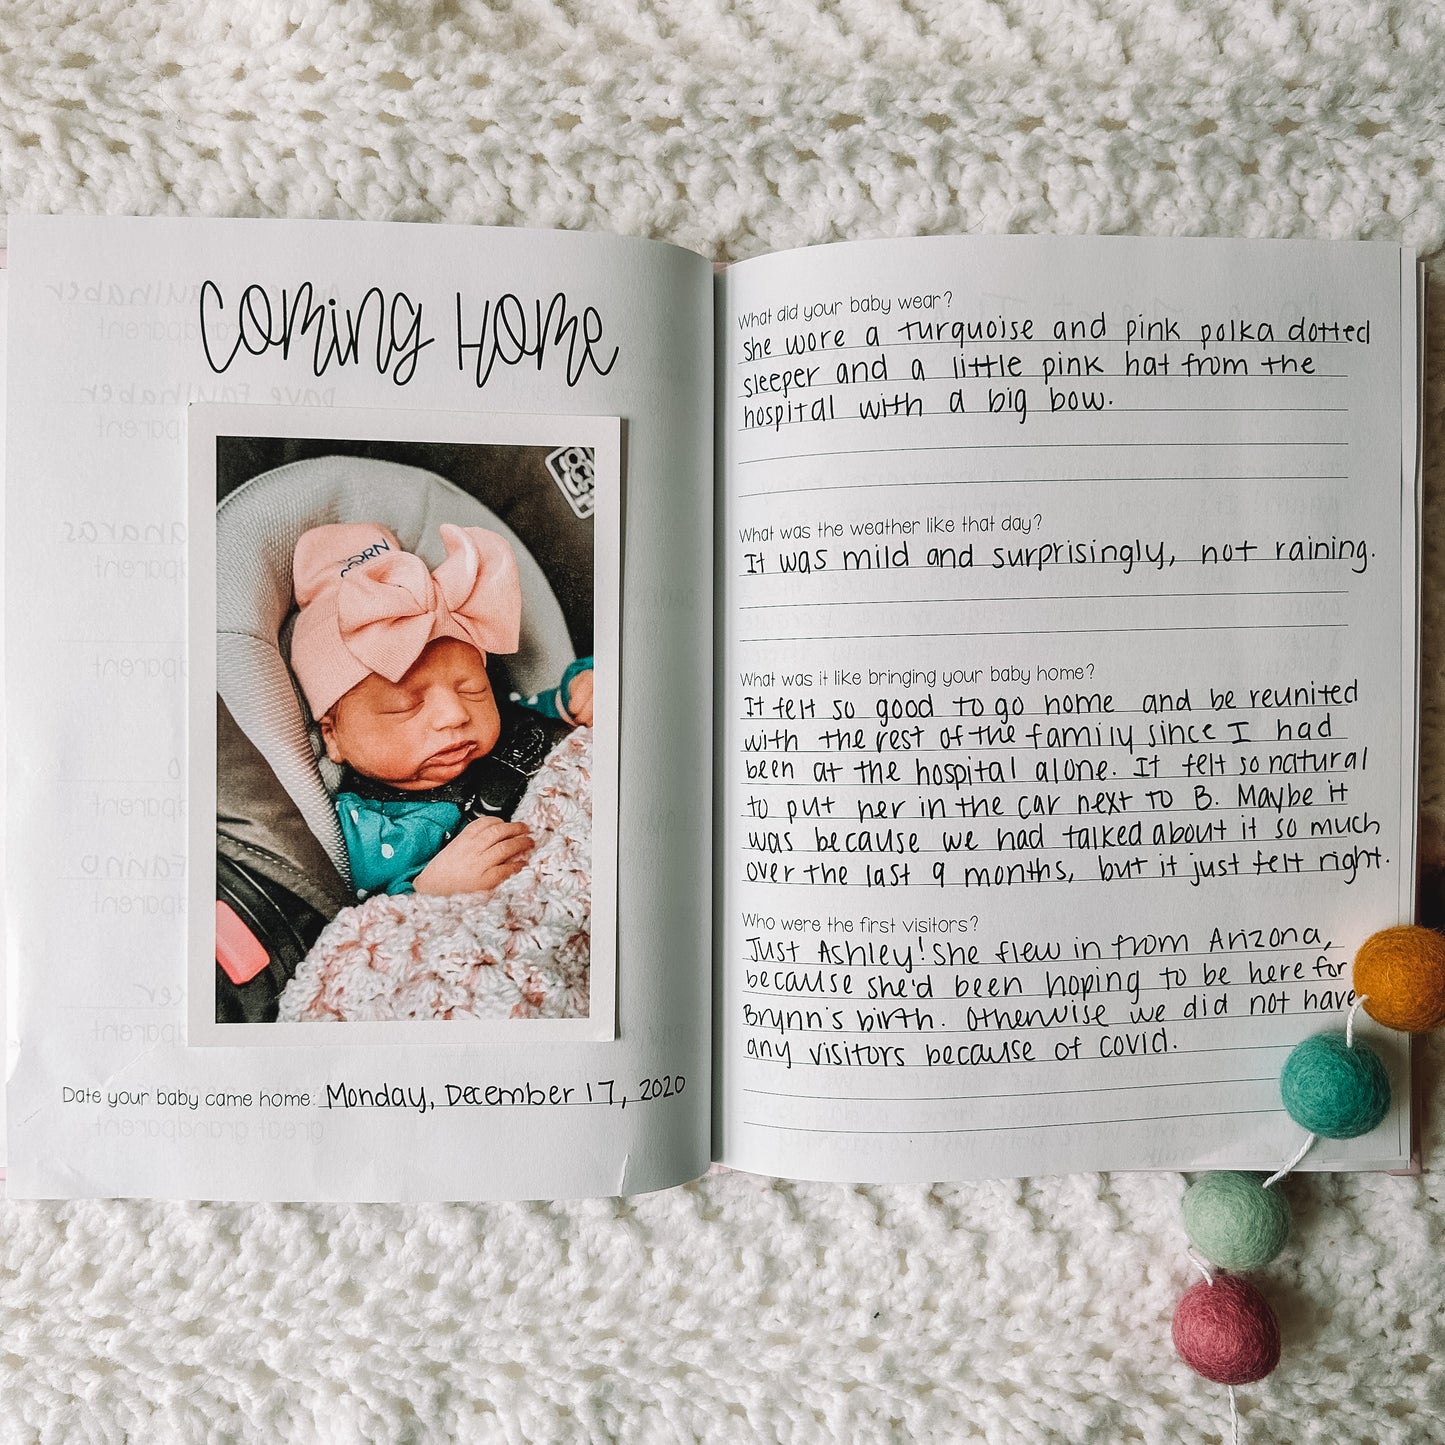 Coming Home
Date your baby came home: Monday, December 17, 2020
What did your baby wear?
She wore a turquoise and pink polka dotted
sleeper and a little pink hat from the
hospital with a big bow.
What was the weather like that day?
It was mild and surprisingly, not raining.
What was it like bringing your baby home?
It felt so good to go home and be reunited
with the rest of the family since I had
been at the hospital alone. It felt so natural
to put her in the car next to B. Maybe it
was because we had talked about it so much
over the last 9 months, but it just felt right.
Who were the first visitors?
Just Ashley! She flew in from Arizona,
because she'd been hoping to be here for
Brynn's birth. Otherwise we did not have
any visitors because of covid.